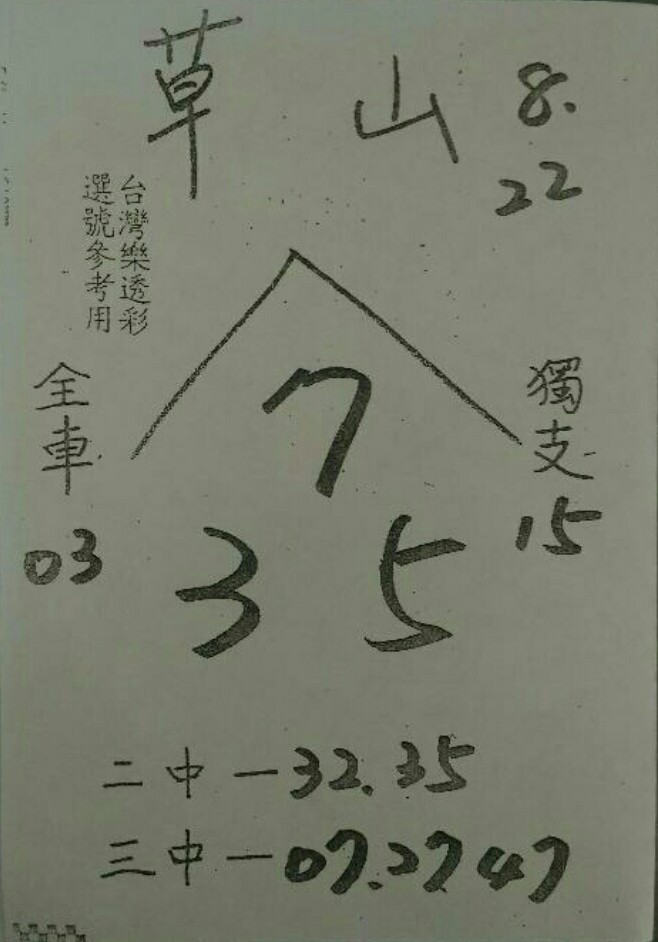 草山 8.
22
台灣樂透彩
選號參考用
全車
03
獨支
15
7
3 5
二中一32.35
三中一07.27 47